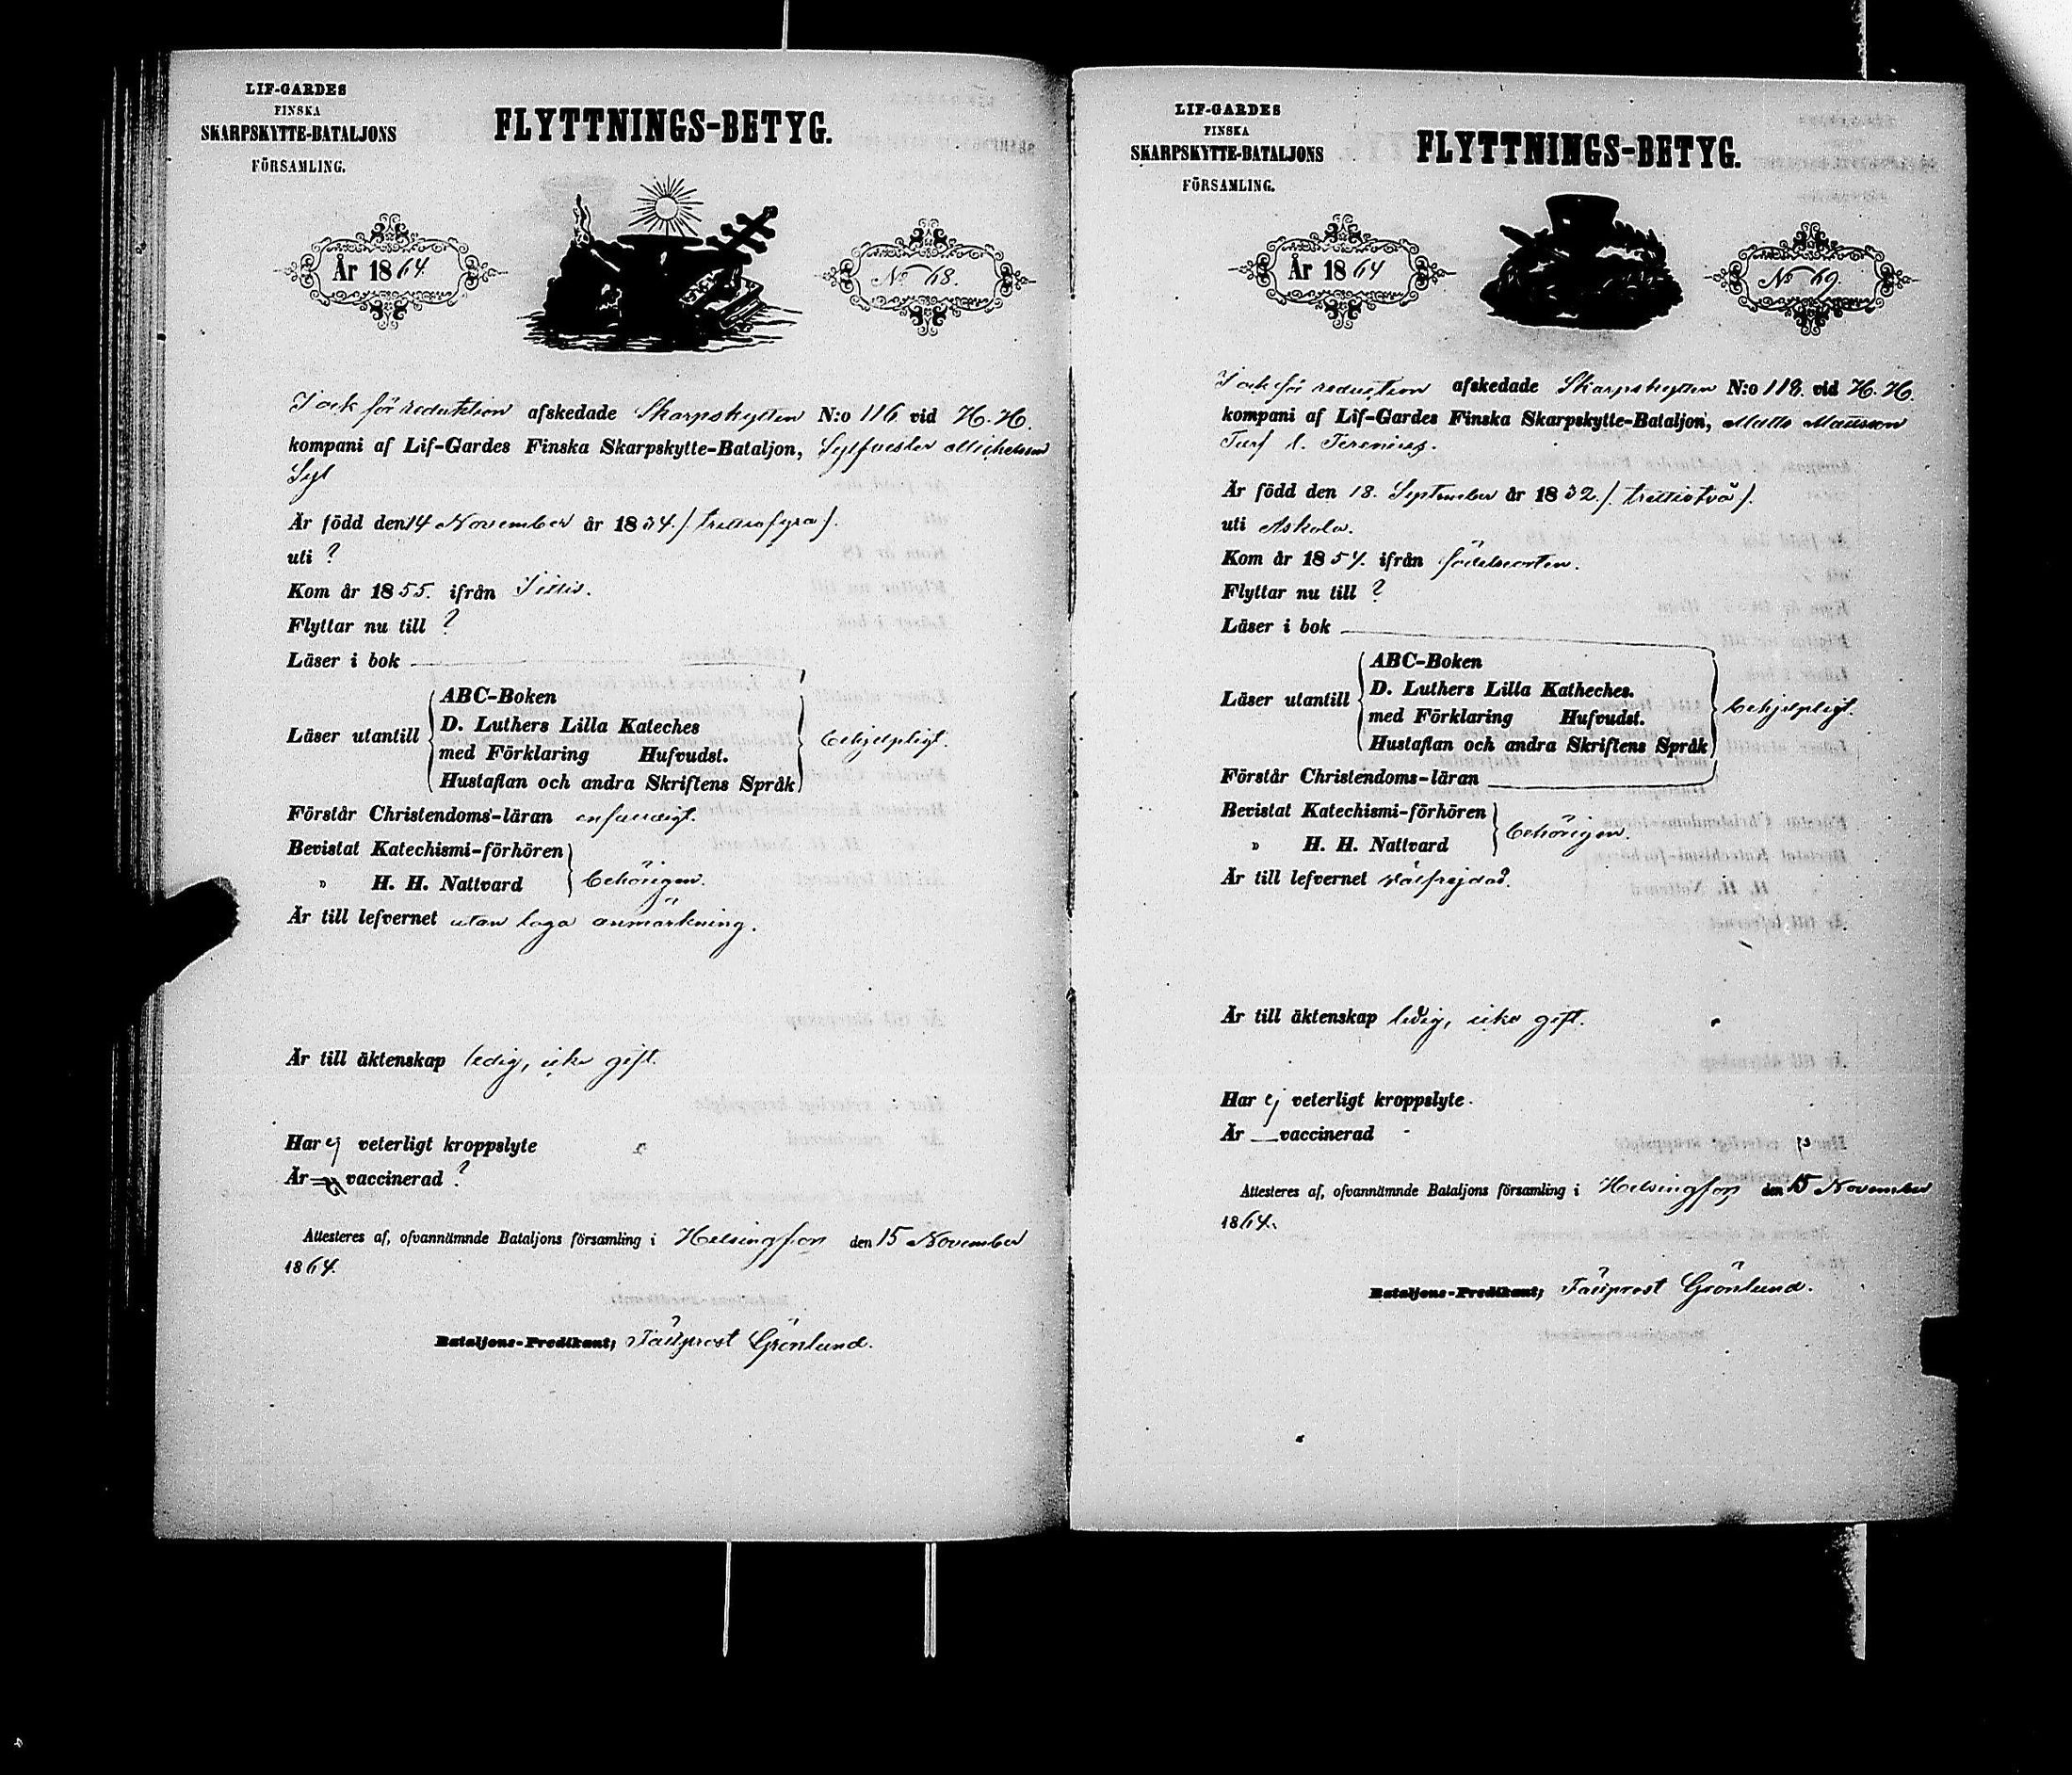 LIF-GARDES
FINSKA
SKARPSKYTTE-BATALJONS
FÖRSAMLING.
FLYTTNINGS-BETYG.
År 1864.
No 68.
I och för reduktion afskedade Skarpskytten N:o 116 vid H. H.
kompani af Lif-Gardes Finska Skarpskytte-Bataljon, Sylfvester Michelsson
Syl
Är född den 14 November år 1834. /. trettiofyra /.
uti ?
Kom år 1855. ifrån
Flyttar nu till ?
Läser i bok
Läser utantill
ABC-Boken
D. Luthers Lilla Kateches
med Förklaring Hufvudst.
Hustaflan och andra Skriftens Språk
behjelpligt.
Förstår Christendoms-läran enfaldigt.
Bevistat Katechismi-förhören
" H. H. Nattvard
behörigen.
Är till lefvernet utan laga anmärkning.
Är till äktenskap ledig, icke gift.
Har ej veterligt kroppslyte
Är vaccinerad ?
Attesteres af, ofvannämnde Bataljons församling i Helsingfors den 15 November
1864.
Bataljons-Predikant; Fältprost Grönlund.
LIF-GARDES
FINSKA
SKARPSKYTTE-BATALJONS
FÖRSAMLING.
FLYTTNINGS-BETYG.
År 1864
No 69.
I och för reduction afskedade Skarpskytten N:o 118. vid H. H.
kompani af Lif-Gardes Finska Skarpskytte-Bataljon, Matts Mattsson
Turf l. Terenius.
Är född den 18. September år 1832. /. trettiotvå /.
uti Askola.
Kom år 1857. ifrån födelseorten.
Flyttar nu till ?
Läser i bok
Läser utantill
ABC-Boken
D. Luthers Lilla Katheches.
med Förklaring Hufvudst.
Hustaflan och andra Skriftens Språk
behjelpligt.
Förstår Christendoms-läran
Bevistat Katechismi-förhören
" H. H. Nattvard
behörigen.
Är till lefvernet välfrejdad.
Är till äktenskap ledig, icke gift.
Har ej veterligt kroppslyte.
Är vaccinerad
Attesteres af, ofvannämnde Bataljons församling i Helsingfors den 15 November
1864.
Bataljons-Predikant; Fältprost Grönlund.